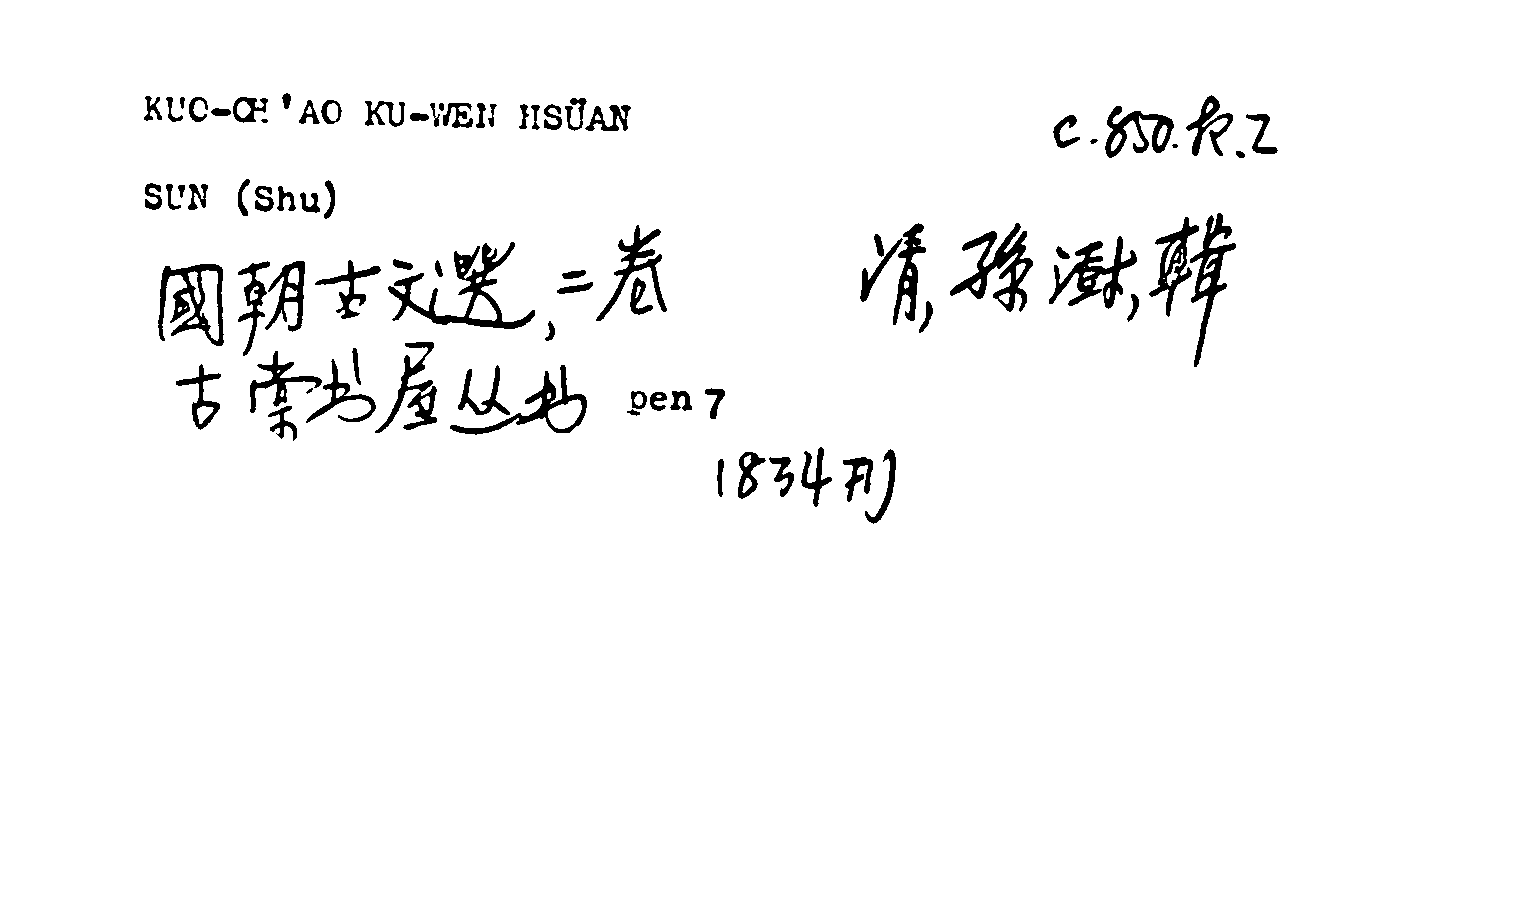 KUO-CH'AO KU-WEN HSÜAN
c.850.k.2
SUN (Shu)
國朝古文選,二卷 清,孫澍,輯
古棠书屋丛书 pen 7
1834刊